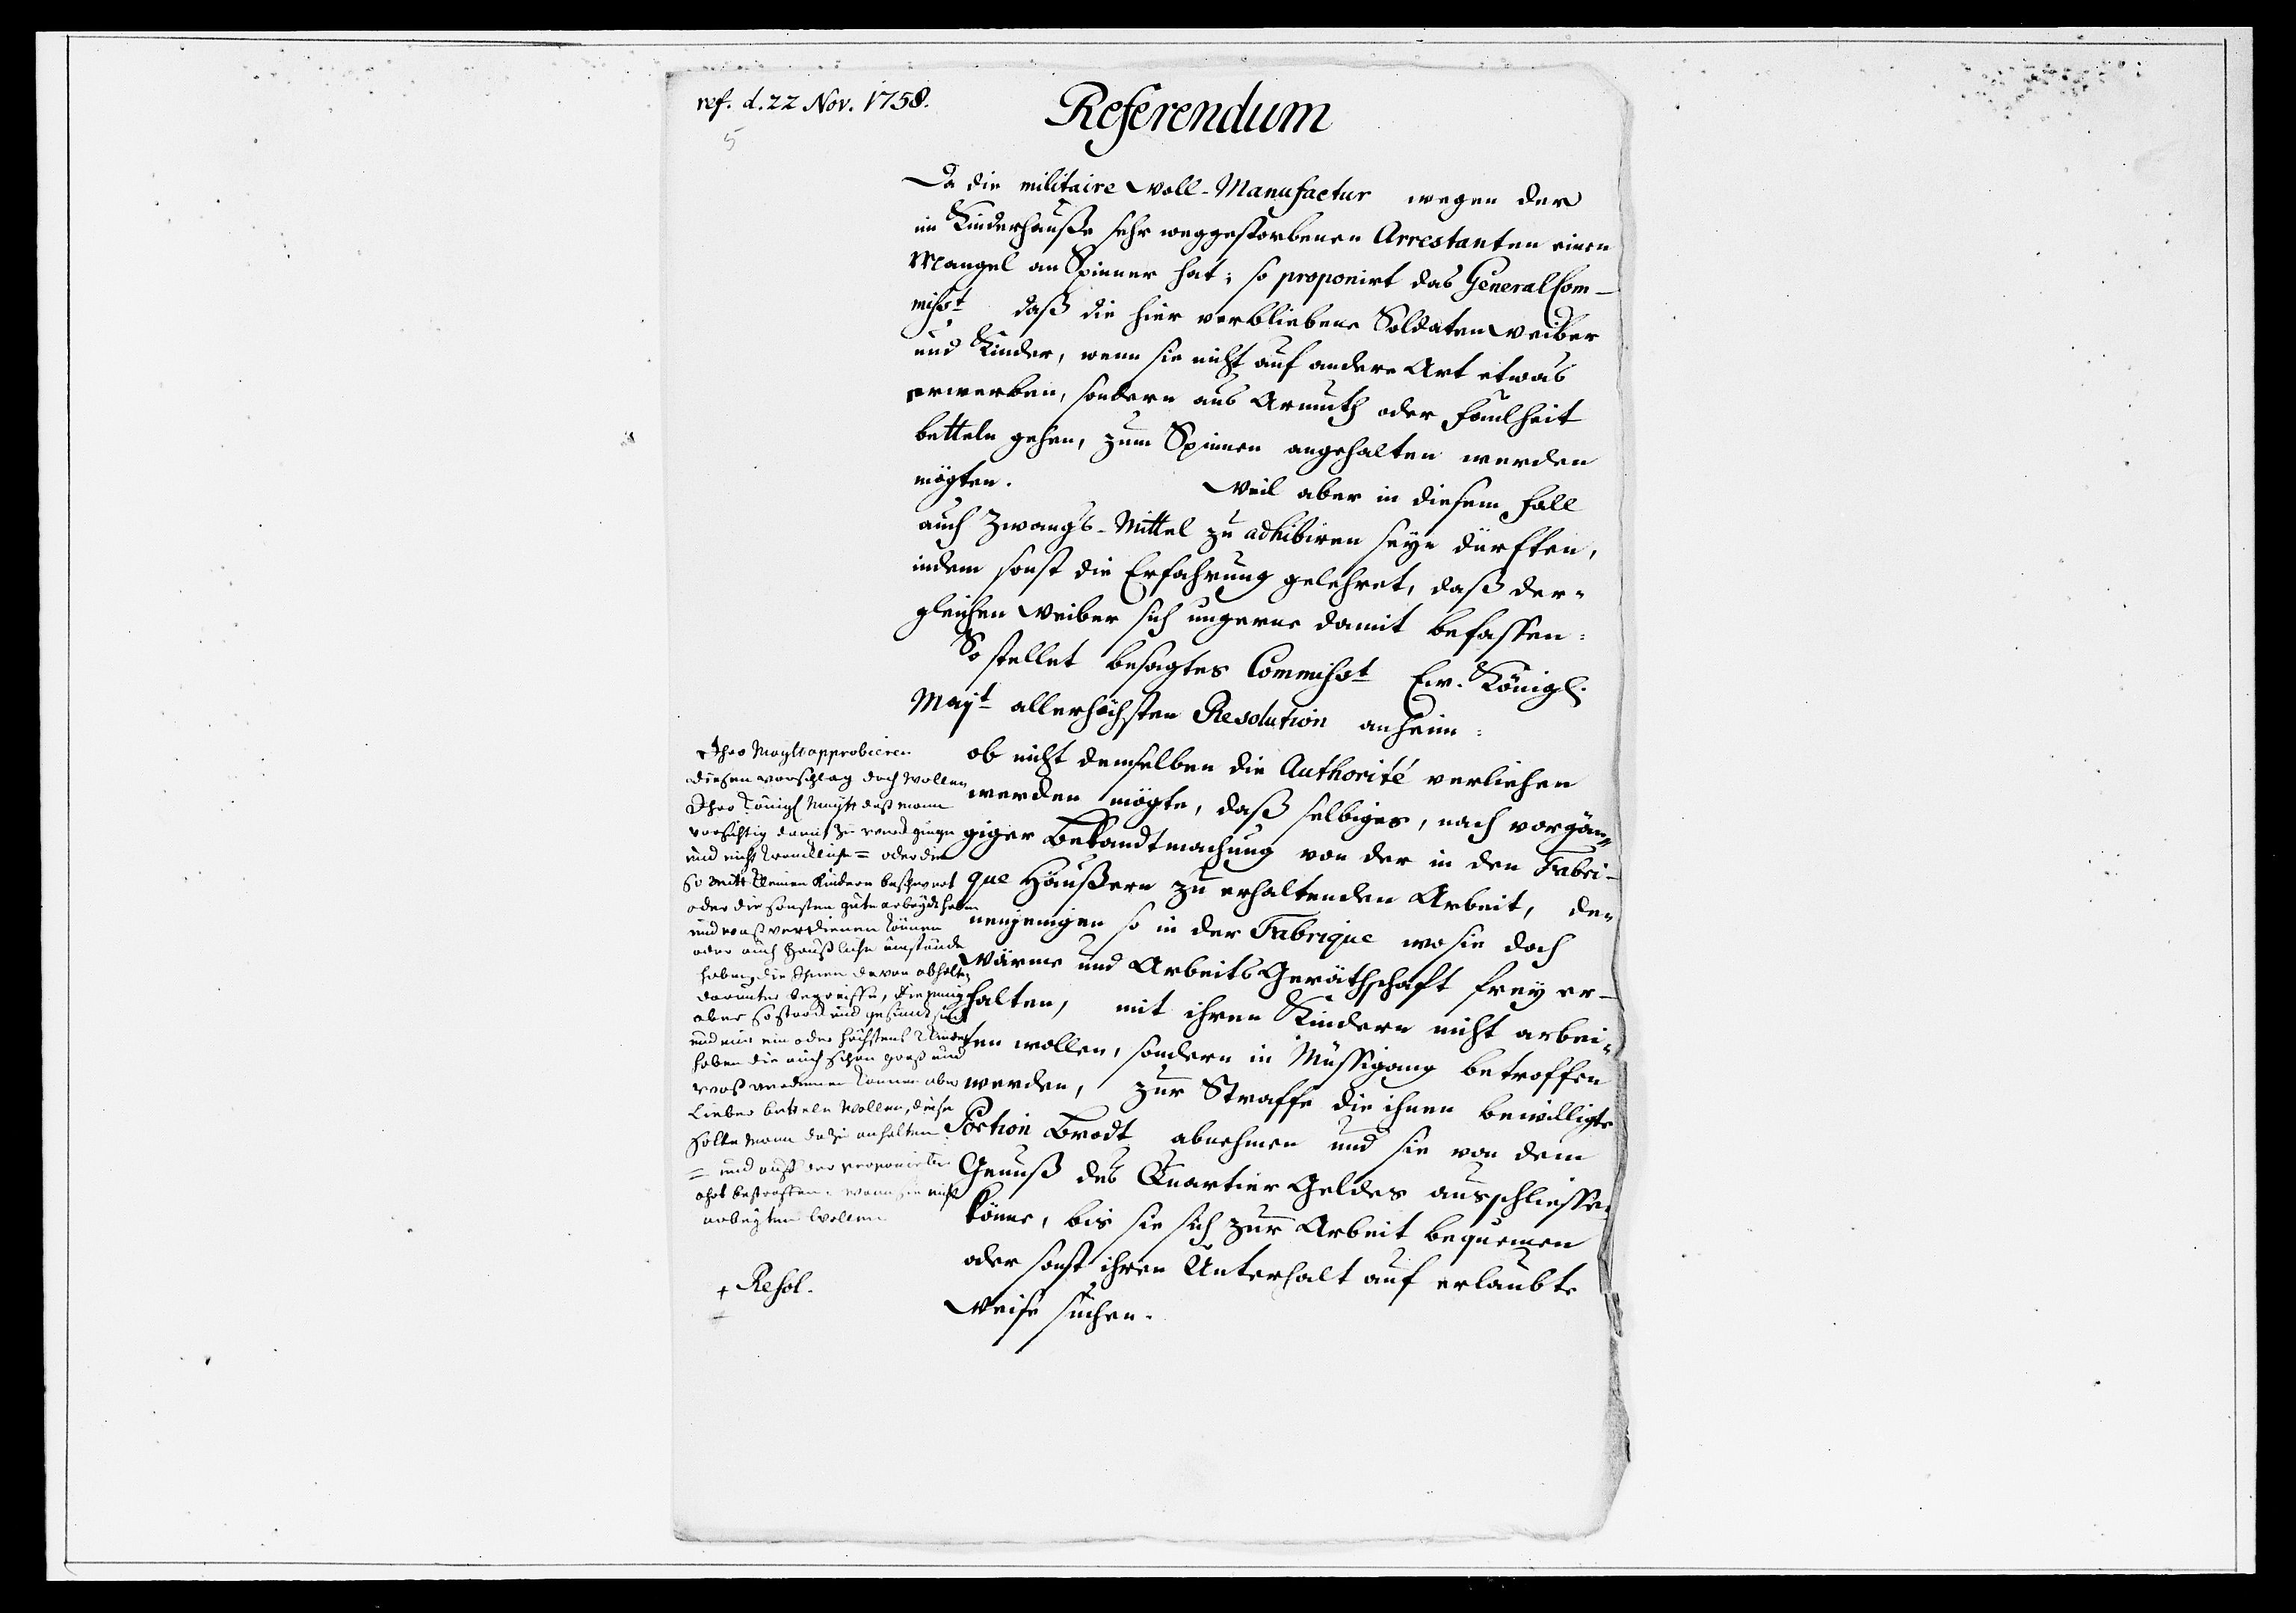 ref. d. 22 Nov. 1758.
5
Referendum
Da die militaire Woll-Manufactur wegen der
im Kinderhauße sehr weggestorbenen Arrestanten einen
Mangel an Spinner hat; so proponirt das General Com-
misst daß die hier verbliebene Soldaten Weiber
und Kinder, wenn sie nicht auf andere Art etwas
erwerben, sondern aus Armuth oder Faulheit
betteln gehen, zum Spinnen angehalten werden
mögten. Weil aber in diesem Fall
auch Zwangs-Mittel zu adhibiren seyn dürfften,
indem sonst die Erfahrung gelehret, daß der-
gleichen Weiber sich ungerne damit befassen:
So stellet besagtes Commisst Ew. Königl.
Majt allerhöchsten Resolution anheim:
ob nicht demselben die Authorité verliehen
werden mögte, daß selbiges, nach vorgän-
giger Bekandtmachung von der in den Fabri-
que Häußern zu erhaltenden Arbeit, de-
nenjenigen so in der Fabrique wo sie doch
Wärme und Arbeits Geräthschaft frey er-
halten, mit ihren Kindern nicht arbei-
ten wollen, sondern in Müssigang betroffen
werden, zur Straffe die ihnen bewilligte
Portion Brodt abnehmen und sie von dem
Genuß des Quartier Geldes ausschliessen
könne, bis sie sich zur Arbeit bequemen
oder sonst ihren Unterhalt auf erlaubte
Weise suchen.
Ihro Maytt approbieren
diesen vorschlag doch wollen
Ihro Königl Maytt daß mann
vorsichtig damit zu
und nicht Krenckliche = oder die
so mitt kleinen Kindern beschwert
oder die sonsten gute arbeydt haben
und waß verdienen können
oder auch haußliche umstände
haben, die Ihnen davon abhalten
darunter begreiffe, diejenige
aber so starck und gesundt sind
und nur ein oder höchstens 2 Kinder
haben die auch schon groß und
waß verdienen können aber
Lieber betteln wollen, diese
solte mann dazu anhalten
= und auf der proponirten
ahrt bestraffen. wann sie nicht
arbeyten wollen
+ Resol.